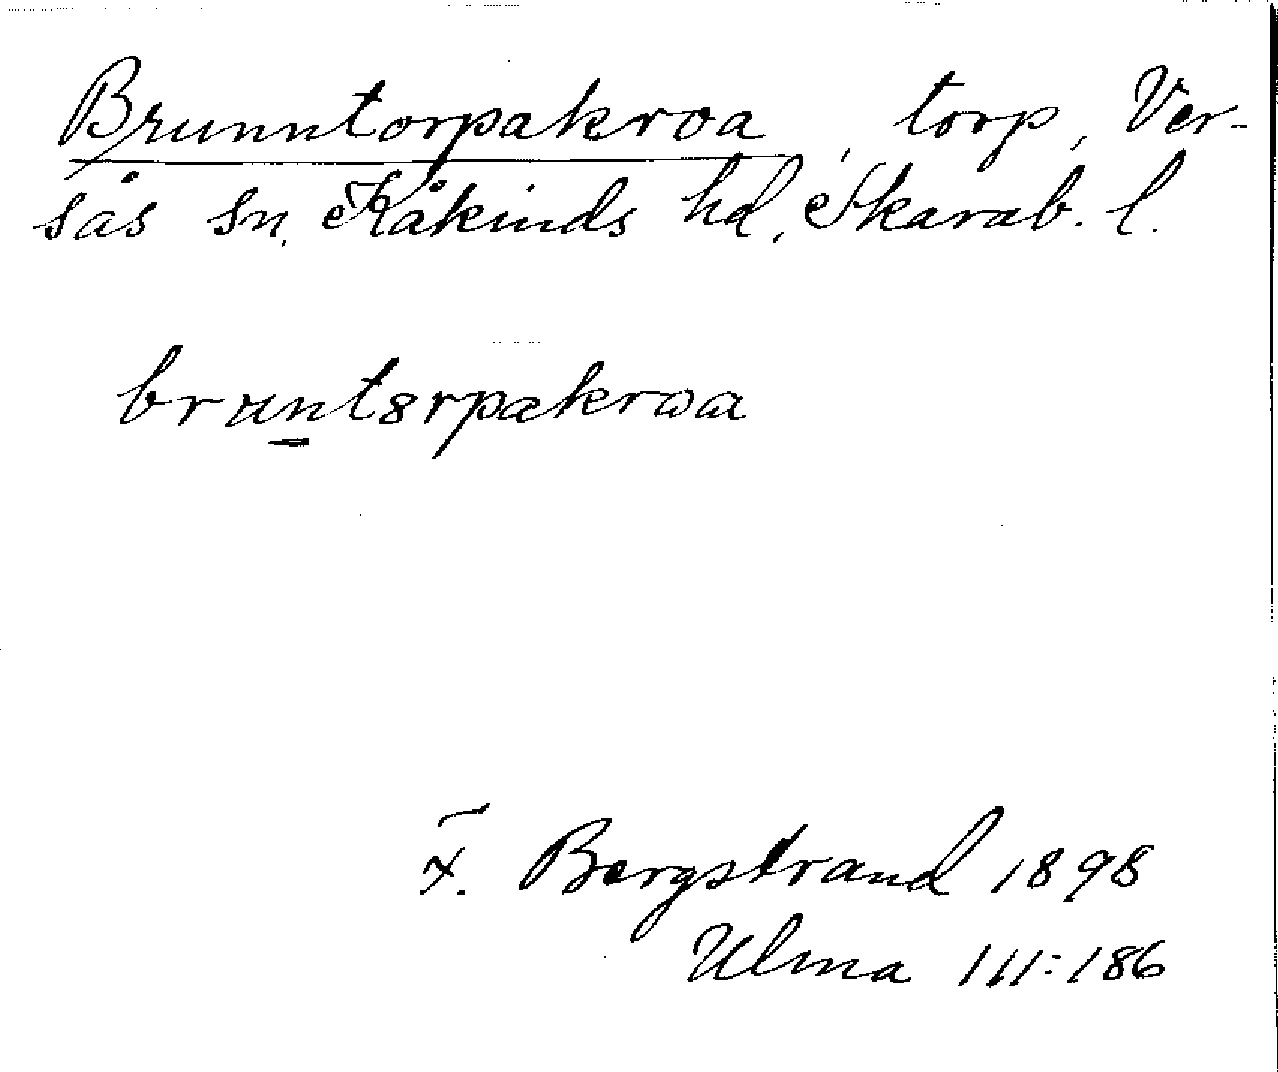 Brunntorpakroa, torp, Ver-
sås sn, Kåkinds hd, Skarab. l.
bruntɞrpakrɷa
F. Bergstrand 1898
Ulma 111:186